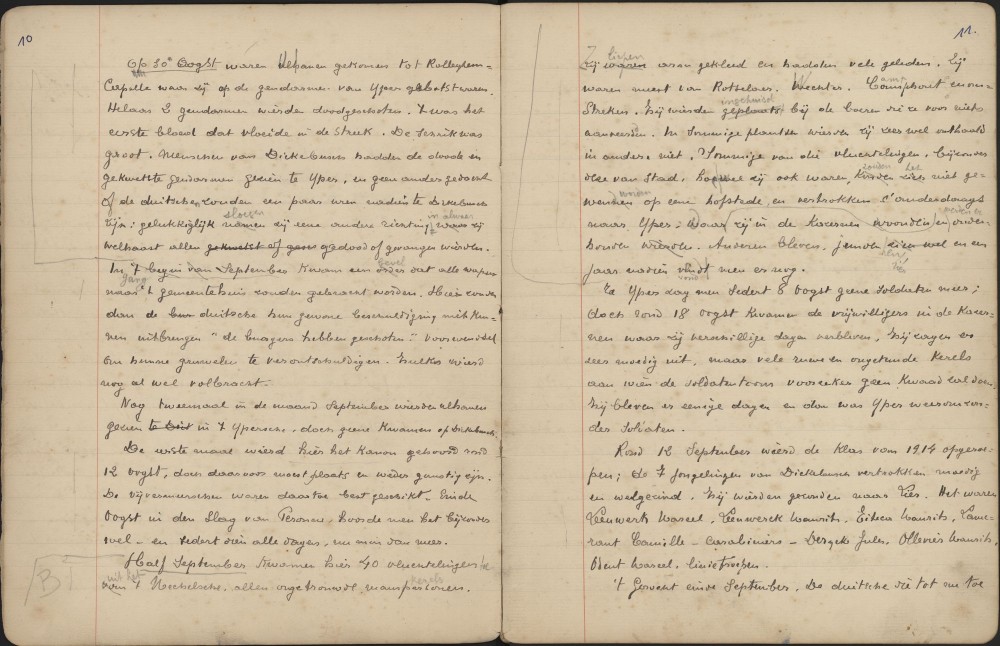 10
Op 30e Oogst waren Uhlanen gekomen tot Rolleghem-
Capelle waar zij op de gendarmen van Yper gebotst waren.
Helaas 2 gendarmen wierden doodgeschoten. 't was het
eerste bloed dat vloeide in de streek. De schrik was
groot. Menschen van Dickebusch hadden de doode en
gekwetste gendarmen gezien te Yper, en geen anders gedacht
of de duitschers zouden een paar uren nadien te Dickebusch
sloegen in alwaer
zijn: gelukkiglijk namen zij eene andere richting waar zij
welhaast allen gekwetst of gevan gedood of gevangen wierden.
gevel
In 't begin van September kwam een order dat alle wapens
naar 't gemeentehuis zouden gebracht worden. Hier zouden
dan de duitsche hun gewone beschuldiging niet kun-
nen uitbrengen "de burgers hebben geschoten" voorwendsel
om hunne gruwelen te verontschuldigen. Zulks wierd
nog al wel volbracht.
Nog tweemaal in de maand September wierden uhlanen
gezien in 't Ypersche, doch geene kwamen op Dickebusch.
De eerste maal wierd hier het kanon gehoord rond
12 oogst, doch daarvoor moet plaats en weder gunstig zijn.
De vijvermenschen waren daartoe best geschikt. Einde
Oogst in den slag van Peronne, hoorde men het bijzonder
wel - en sedert dien alle dagen, nu min dan meer.
Half September kwamen hier 40 vluchtelingen
uit het kerels
van 't Mechelsche, allen ongetrouwde manspersonen.
B
11.
liepen
Zij waren arm gekleed en hadden vele geleden. Zij
waren meest van Rotselaer, Wechter, Camphout en om-
ingehuisd
streken. Zij wierden geplaatst bij de boeren die ze voor niets
aanveerden. In sommige plaatsen wierden zij zeer wel onthaald
in andere niet. Sommige van die vluchtelingen, bijzonder
zonden
deze van stad, hoewel zij ook waren, konden zich niet ge-
worden
wennen op eene hofstede, en vertrokken s'anderdaags
naar Yper: waar zij in de kazernen woonden en onder-
houden wierden. Anderen bleven, jeunden zien wel en een
jaar nadien vindt men er nog.
vond
Te Yper zag men sedert 8 oogst geene soldaten meer;
doch rond 18 oogst kwamen de vrijwilligers in de kazer-
nen waar zij verschillige dagen verbleven. Zij zagen er
zeer moedig uit, maar vele ruwe en ongetemde kerels
aan wien de soldatentoom voorzeker geen kwaad zal doen.
Zij bleven er eenige dagen en dan was Yper weerom zon-
der soldaten.
Rond 12 September wierd de klas van 1914 opgeroe-
pen; de 7 jongelingen van Dickebusch vertrokken moedig
en welgezind. Zij wierden gezonden naar Lier. Het waren
Leenwerk Marcel, Leenwerck Maurits, Eileen Maurits, Lame-
rant Camille - carabiniers - Deryck Jules, Olievier Maurits,
Odent Marcel, linietroepen.
't Gerucht einde September. De duitsche die tot nu toe